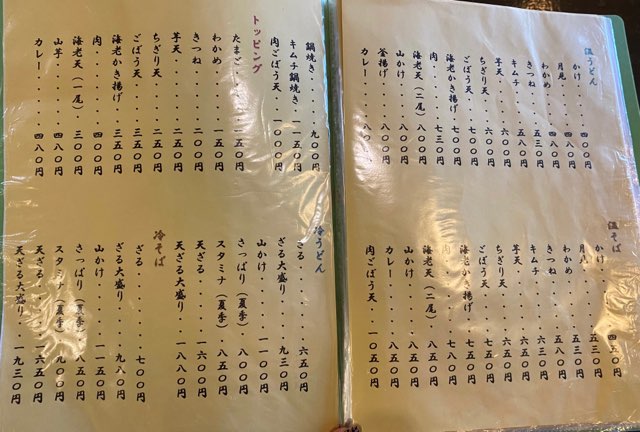 温うどん
かけ・・・・・四〇〇円
月見・・・・・四八〇円
わかめ・・・・四八〇円
きつね・・・・五三〇円
キムチ・・・・五八〇円
芋天・・・・・六〇〇円
ちぎり天・・・六〇〇円
ごぼう天・・・七〇〇円
海老かき揚げ・七〇〇円
肉・・・・・・七三〇円
海老天(二尾)・八〇〇円
山かけ・・・・八〇〇円
釜揚げ・・・・八〇〇円
カレー・・・・八〇
温そば
かけ・・・・・四五〇円
月見・・・・・五三〇円
わかめ・・・・五三〇円
きつね・・・・五八〇円
キムチ・・・・六三〇円
芋天・・・・・六五〇円
ちぎり天・・・六五〇円
ごぼう天・・・七五〇円
海老かき揚げ・七五〇円
肉・・・・・・七八〇円
海老天(二尾)・八五〇円
山かけ・・・・八五〇円
カレー・・・・八五〇円
肉ごぼう天・・一〇五〇円
鍋焼き・・・・九〇〇円
キムチ鍋焼き・一一五〇円
肉ごぼう天・・一〇〇〇円
トッピング
たまご・・・・一五〇円
わかめ・・・・一五〇円
きつね・・・・二〇〇円
芋天・・・・・二五〇円
ちぎり天・・・二五〇円
ごぼう天・・・三五〇円
海老かき揚げ・三五〇円
肉・・・・・・四〇〇円
海老天(一尾)・三〇〇円
山芋・・・・・四八〇円
カレー・・・・四八〇円
冷うどん
ざる・・・・・六五〇円
ざる大盛り・・九三〇円
山かけ・・・・一一〇〇円
さっぱり(夏季)・八〇〇円
スタミナ(夏季)・八五〇円
天ざる・・・・一六〇〇円
天ざる大盛り・一八八〇円
冷そば
ざる・・・・・七〇〇円
ざる大盛り・・九八〇円
山かけ・・・・一一五〇円
さっぱり(夏季)・八五〇円
スタミナ(夏季)・九〇〇円
天ざる・・・・一六五〇円
天ざる大盛り・一九三〇円